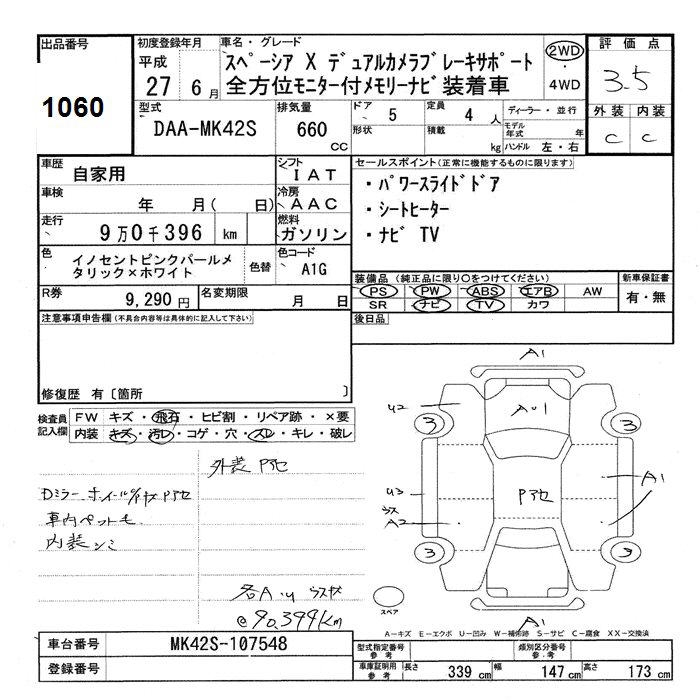 出品番号
1060
初度登録年月
平成
27 6月
車名・グレード
スペーシア X デュアルカメラブレーキサポート
全方位モニター付メモリーナビ装着車
2WD
・
4WD
評価点
3.5
外装 内装
C C
型式
DAA-MK42S
排気量
660
CC
ドア
5
定員
4 人
形状
積載
kg
ディーラー・並行
モデル年式 年
ハンドル 左・右
車歴
自家用
車検
年 月( 日)
走行
9万0千396 km
色
イノセントピンクパールメ
タリック×ホワイト
色替
シフト
IAT
冷房
AAC
燃料
ガソリン
色コード
A1G
R券
9,290円
名変期限
月 日
セールスポイント(正常に機能するものに限ります)
・パワースライドドア
・シートヒーター
・ナビ TV
装備品(純正品に限り○をつけてください)
PS PW ABS エアB AW
SR ナビ TV カワ
新車保証書
有・無
後日品
注意事項申告欄(不具合内容等は具体的に記入して下さい)
修復歴 有〔箇所 〕
検査員
記入欄
FW キズ・飛石・ヒビ割・リペア跡・×要
内装 キズ・汚レ・コゲ・穴・スレ・キレ・破レ
外装 Pアセ
Dミラー ホイール/
Pアセ
車内ペットモ
内装シミ
各A・U
@90,399km
A1
U2
A・U1
3
3
U3
A2
Pアセ
A1
3
3
A1
スペア
A-キズ E-エクボ U-凹み W-補修跡 S-サビ C-腐食 XX-交換済
車台番号
MK42S-107548
登録番号
型式指定番号
参考
類別区分番号
参考
車庫証明用
参考
長さ 339 cm
幅 147 cm
高さ 173 cm